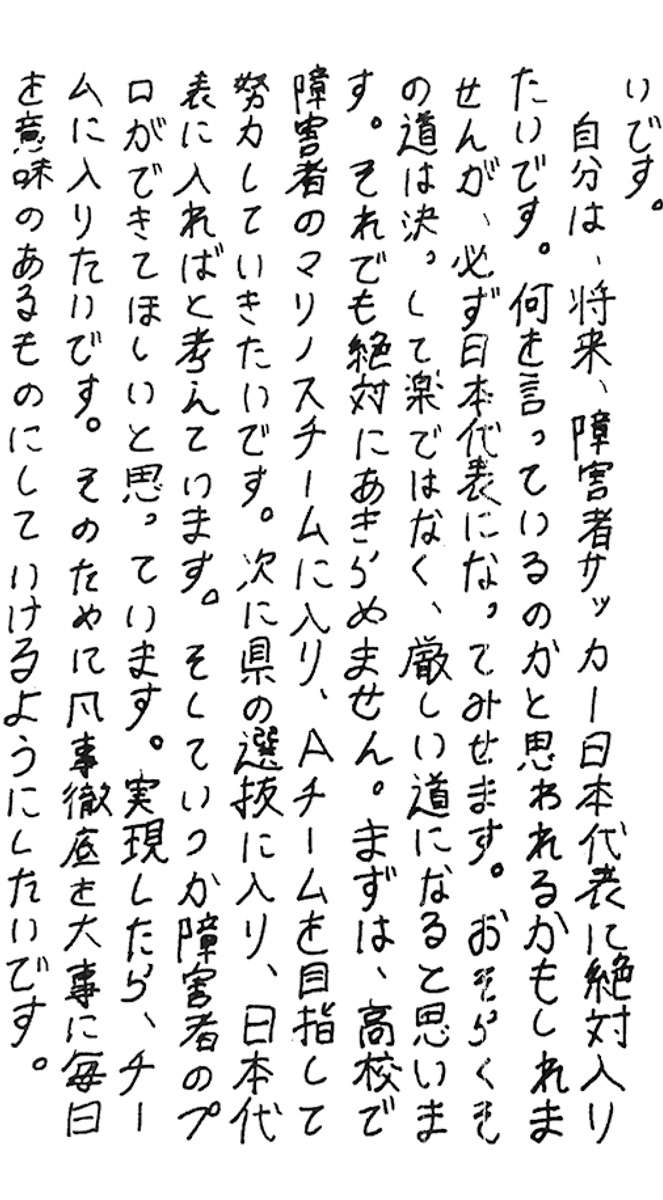 いです。
自分は、将来、障害者サッカー日本代表に絶対入り
たいです。何を言っているのかと思われるかもしれま
せんが、必ず日本代表になってみせます。おそらくそ
の道は決っして楽ではなく、厳しい道になると思いま
す。それでも絶対にあきらめません。まずは、高校で
障害者のマリノスチームに入り、Aチームを目指して
努力していきたいです。次に県の選抜に入り、日本代
表に入ればと考えています。そしていつか障害者のプ
ロができてほしいと思っています。実現したら、チー
ムに入りたいです。そのために凡事徹底を大事に毎日
を意味のあるものにしていけるようにしたいです。